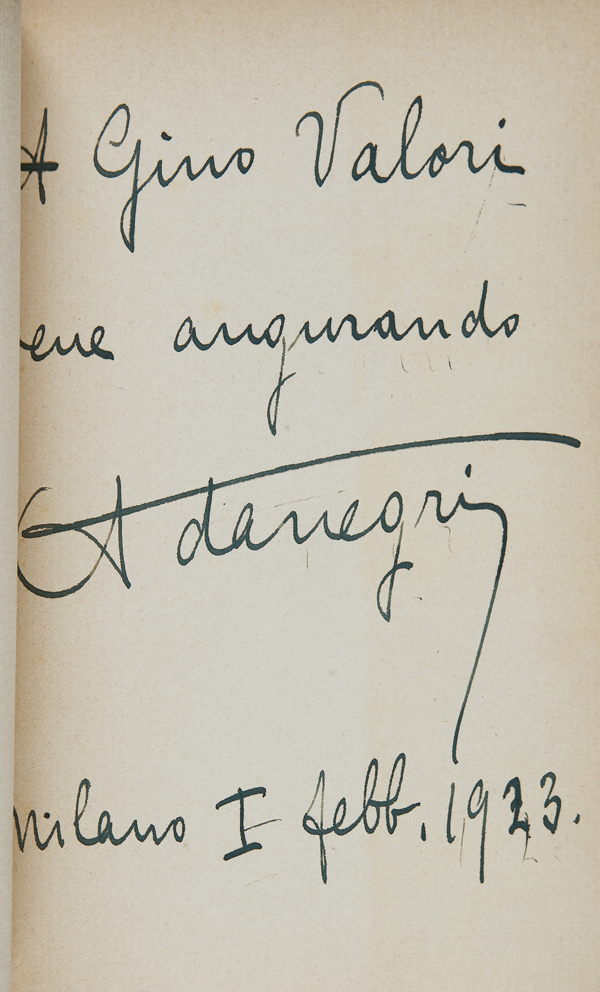 A Gino Valori
ene augurando
Adanegri
Milano I febb. 1923.